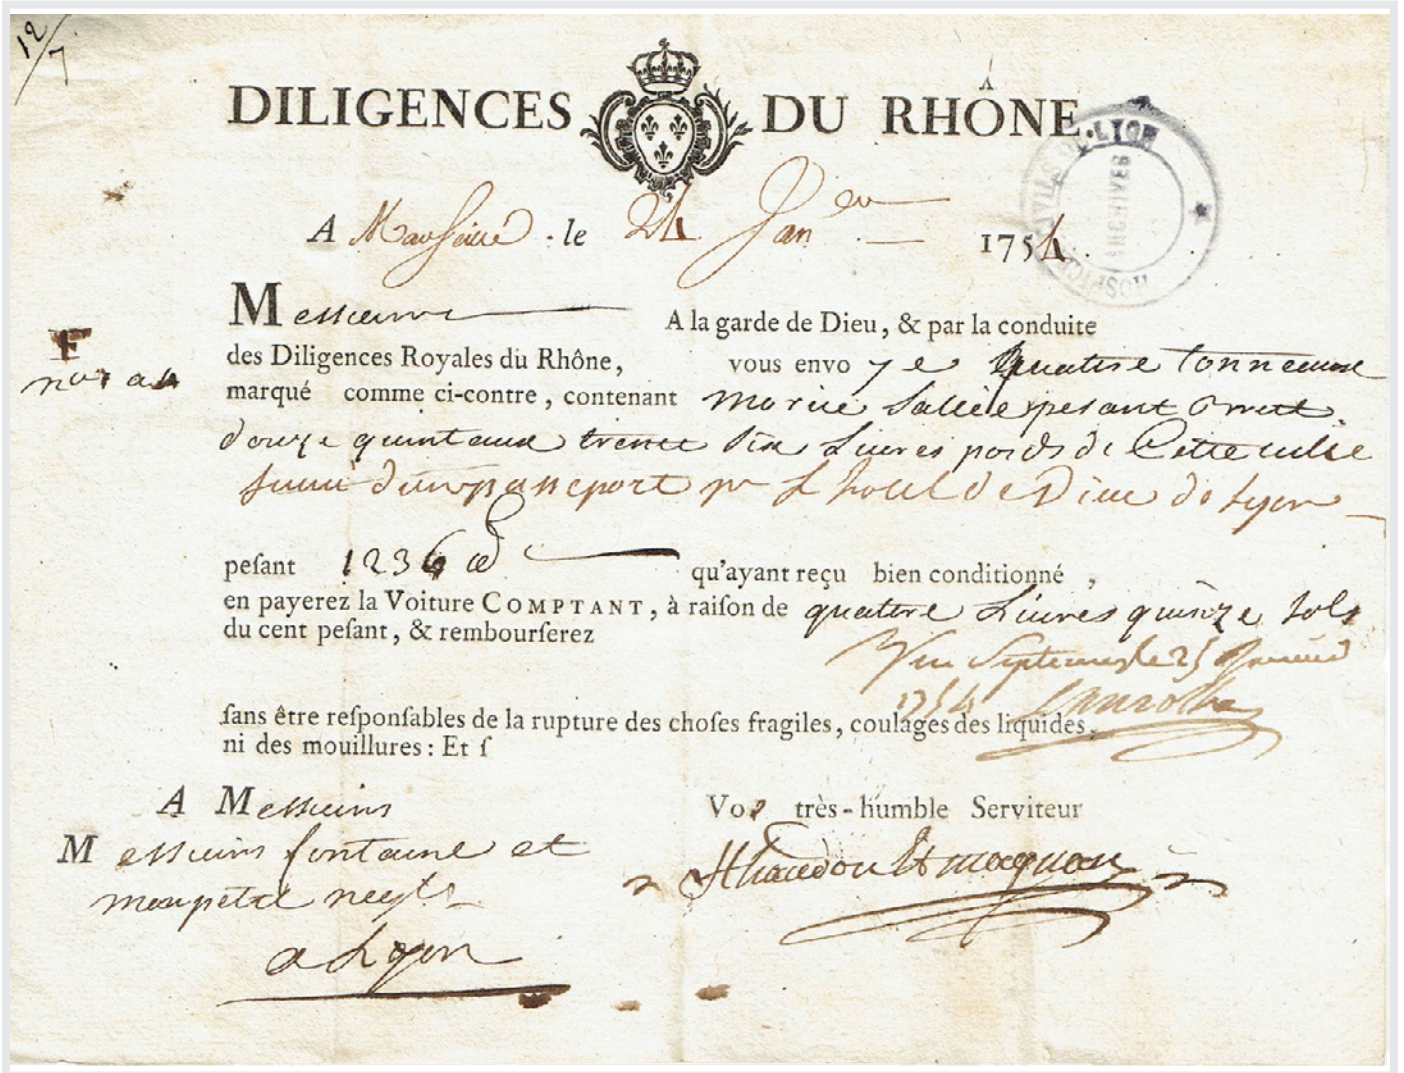 12/7
DILIGENCES DU RHÔNE
HOSPICES CIVILS DE LYON
ARCHIVES
A Marseille le 24 Janer 1754
Messieurs A la garde de Dieu, & par la conduite
des Diligences Royales du Rhône, vous envoye quatre tonneaux
F
marqué comme ci-contre, contenant morue sallée pesant
douze quintaux trente six Livres poids de Cette ville
suivi d'un passeport pr L'hotel de Dieu de Lyon
peſant 1236 qu'ayant reçu bien conditionné,
en payerez la Voiture COMPTANT, à raiſon de quatre Livres quinze sols
du cent peſant, & rembourſerez
Vu Septemes le 25 Janvier
1754
ſans être reſponſables de la rupture des choſes fragiles, coulages des liquides,
ni des mouillures : Et ſ
A Messieurs Vos très-humble Serviteur
Messieurs fontaine et
monpetit negts
a Lyon